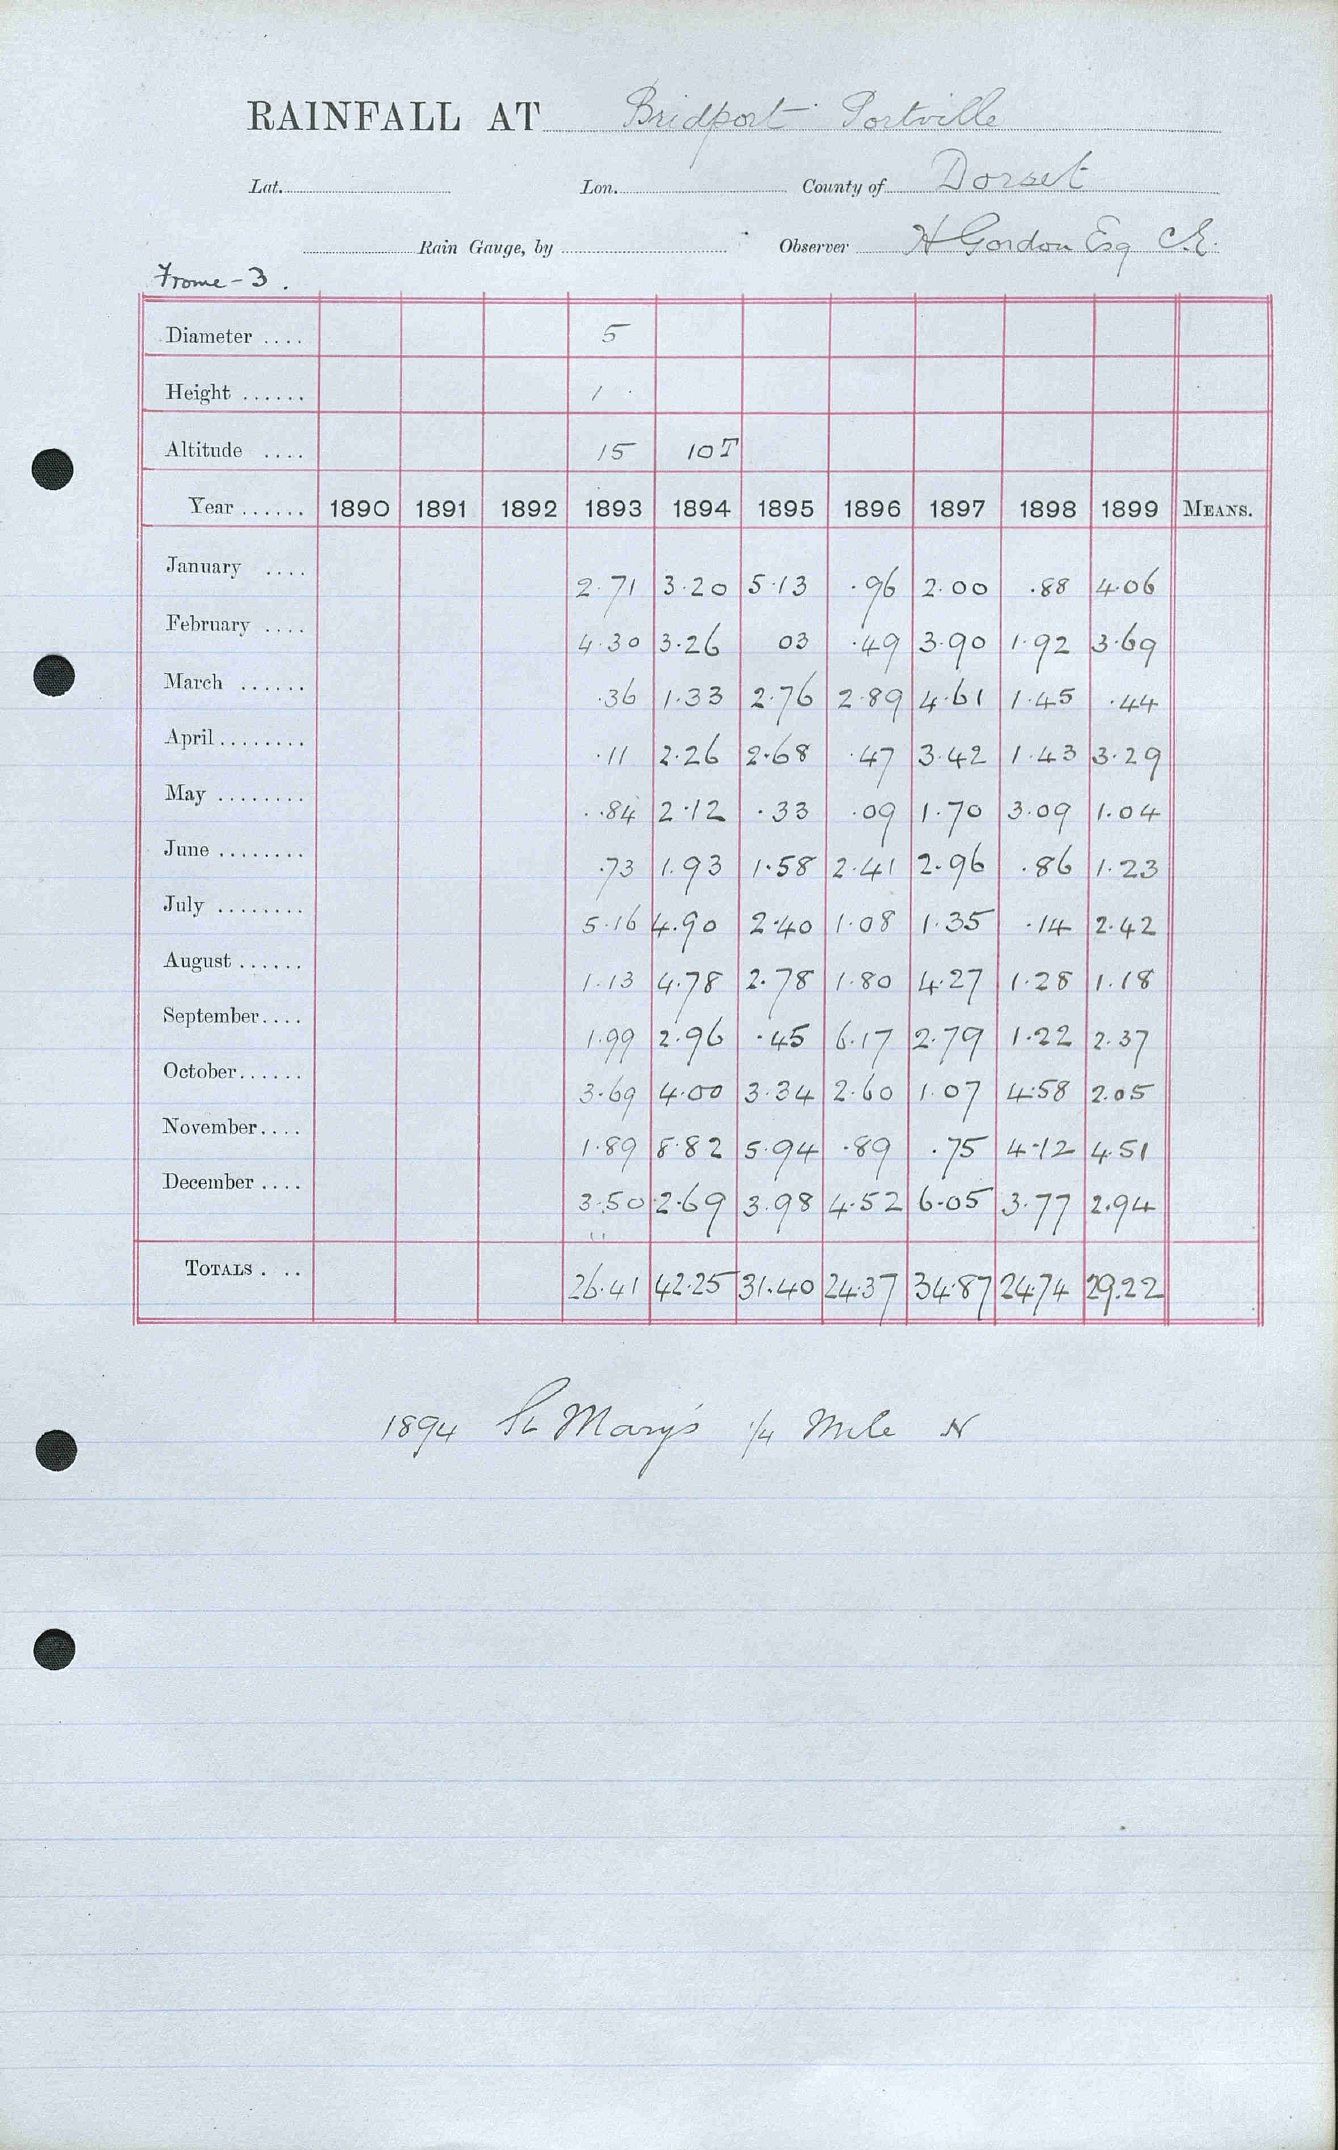 RAINFALL AT Bridport Portville
Lat. Lon. County of Dorset
Rain Gauge, by Observer H Gordon Esq C.E.
Frome - 3.
Diameter .... 5
Height ...... 1
Altitude .... 15 10T
Year ...... 1890 1891 1892 1893 1894 1895 1896 1897 1898 1899 MEANS.
January .... 2.71 3.20 5.13 .96 2.00 .88 4.06
February .... 4.30 3.26 03 .49 3.90 1.92 3.69
March ...... .36 1.33 2.76 2.89 4.61 1.45 .44
April ........ .11 2.26 2.68 .47 3.42 1.43 3.29
May ........ .84 2.12 .33 .09 1.70 3.09 1.04
June ........ .73 1.93 1.58 2.41 2.96 .86 1.23
July ........ 5.16 4.90 2.40 1.08 1.35 .14 2.42
August ...... 1.13 4.78 2.78 1.80 4.27 1.28 1.18
September .... 1.99 2.96 .45 6.17 2.79 1.22 2.37
October ...... 3.69 4.00 3.34 2.60 1.07 4.58 2.05
November .... 1.89 8.82 5.94 .89 .75 4.12 4.51
December .... 3.50 2.69 3.98 4.52 6.05 3.77 2.94
TOTALS . .. 26.41 42.25 31.40 24.37 34.87 24.74 29.22
1894 St Mary's 1/4 Mile N